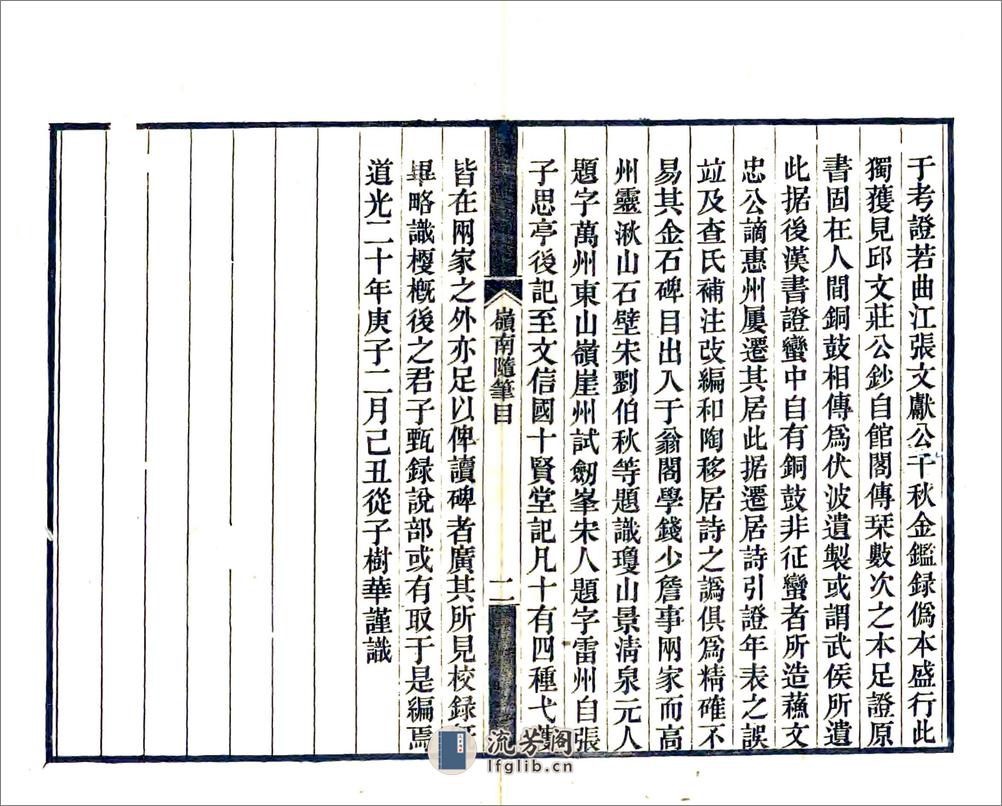 于考證若曲江張文獻公千秋金鑑録僞本盛行此
獨獲見邱文莊公鈔自館閣傳棊數次之本足證原
書固在人間銅鼓相傳爲伏波遺製或謂武侯所遺
此据後漢書證蠻中自有銅鼓非征蠻者所造蘓文
忠公謫惠州屢遷其居此据遷居詩引證年表之誤
竝及查氏補注攺編和陶移居詩之譌俱爲精確不
易其金石碑目出入于翁閣學錢少詹事兩家而高
州靈湫山石壁宋劉伯秋等題識瓊山景淸泉元人
題字萬州東山嶺崖州試劒峯宋人題字雷州自張
子思亭後記至文信國十賢堂記凡十有四種弋
嶺南隨筆目
二
皆在兩家之外亦足以俾讀碑者廣其所見校録
畢略識㮣槪後之君子甄録說部或有取于是編焉
道光二十年庚子二月己丑從子樹華謹識
流芳阁
lfglib.cn